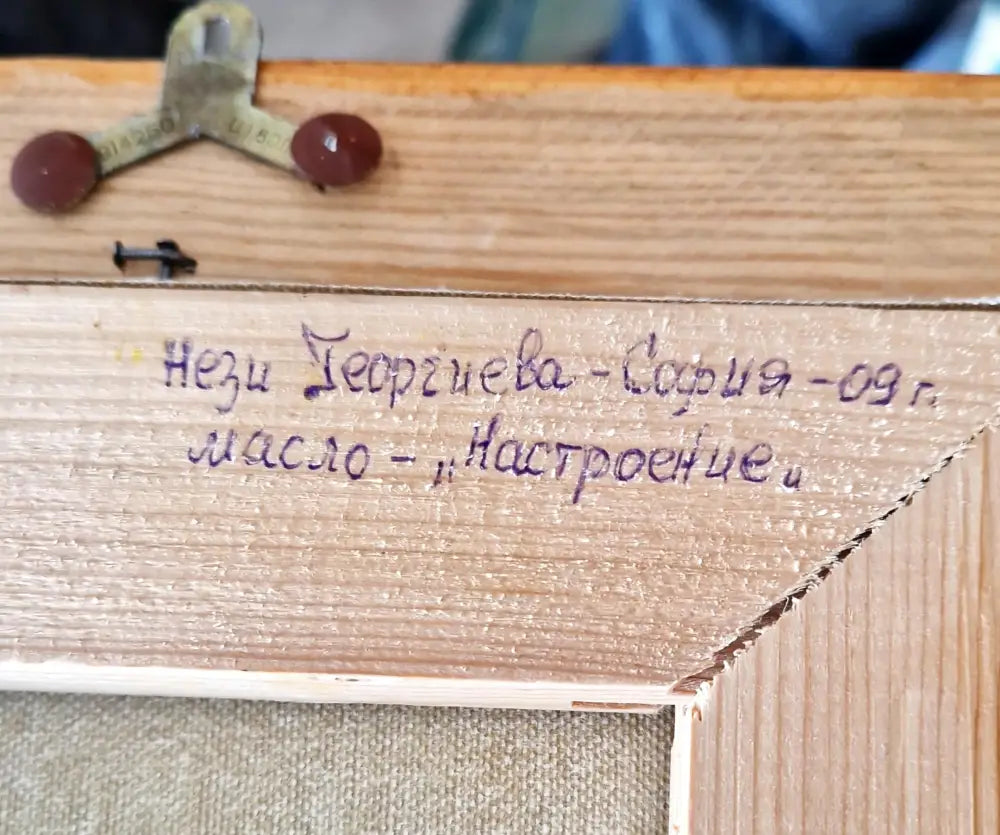 Нези Георгиева - София - 09 г.
масло - „Настроение“